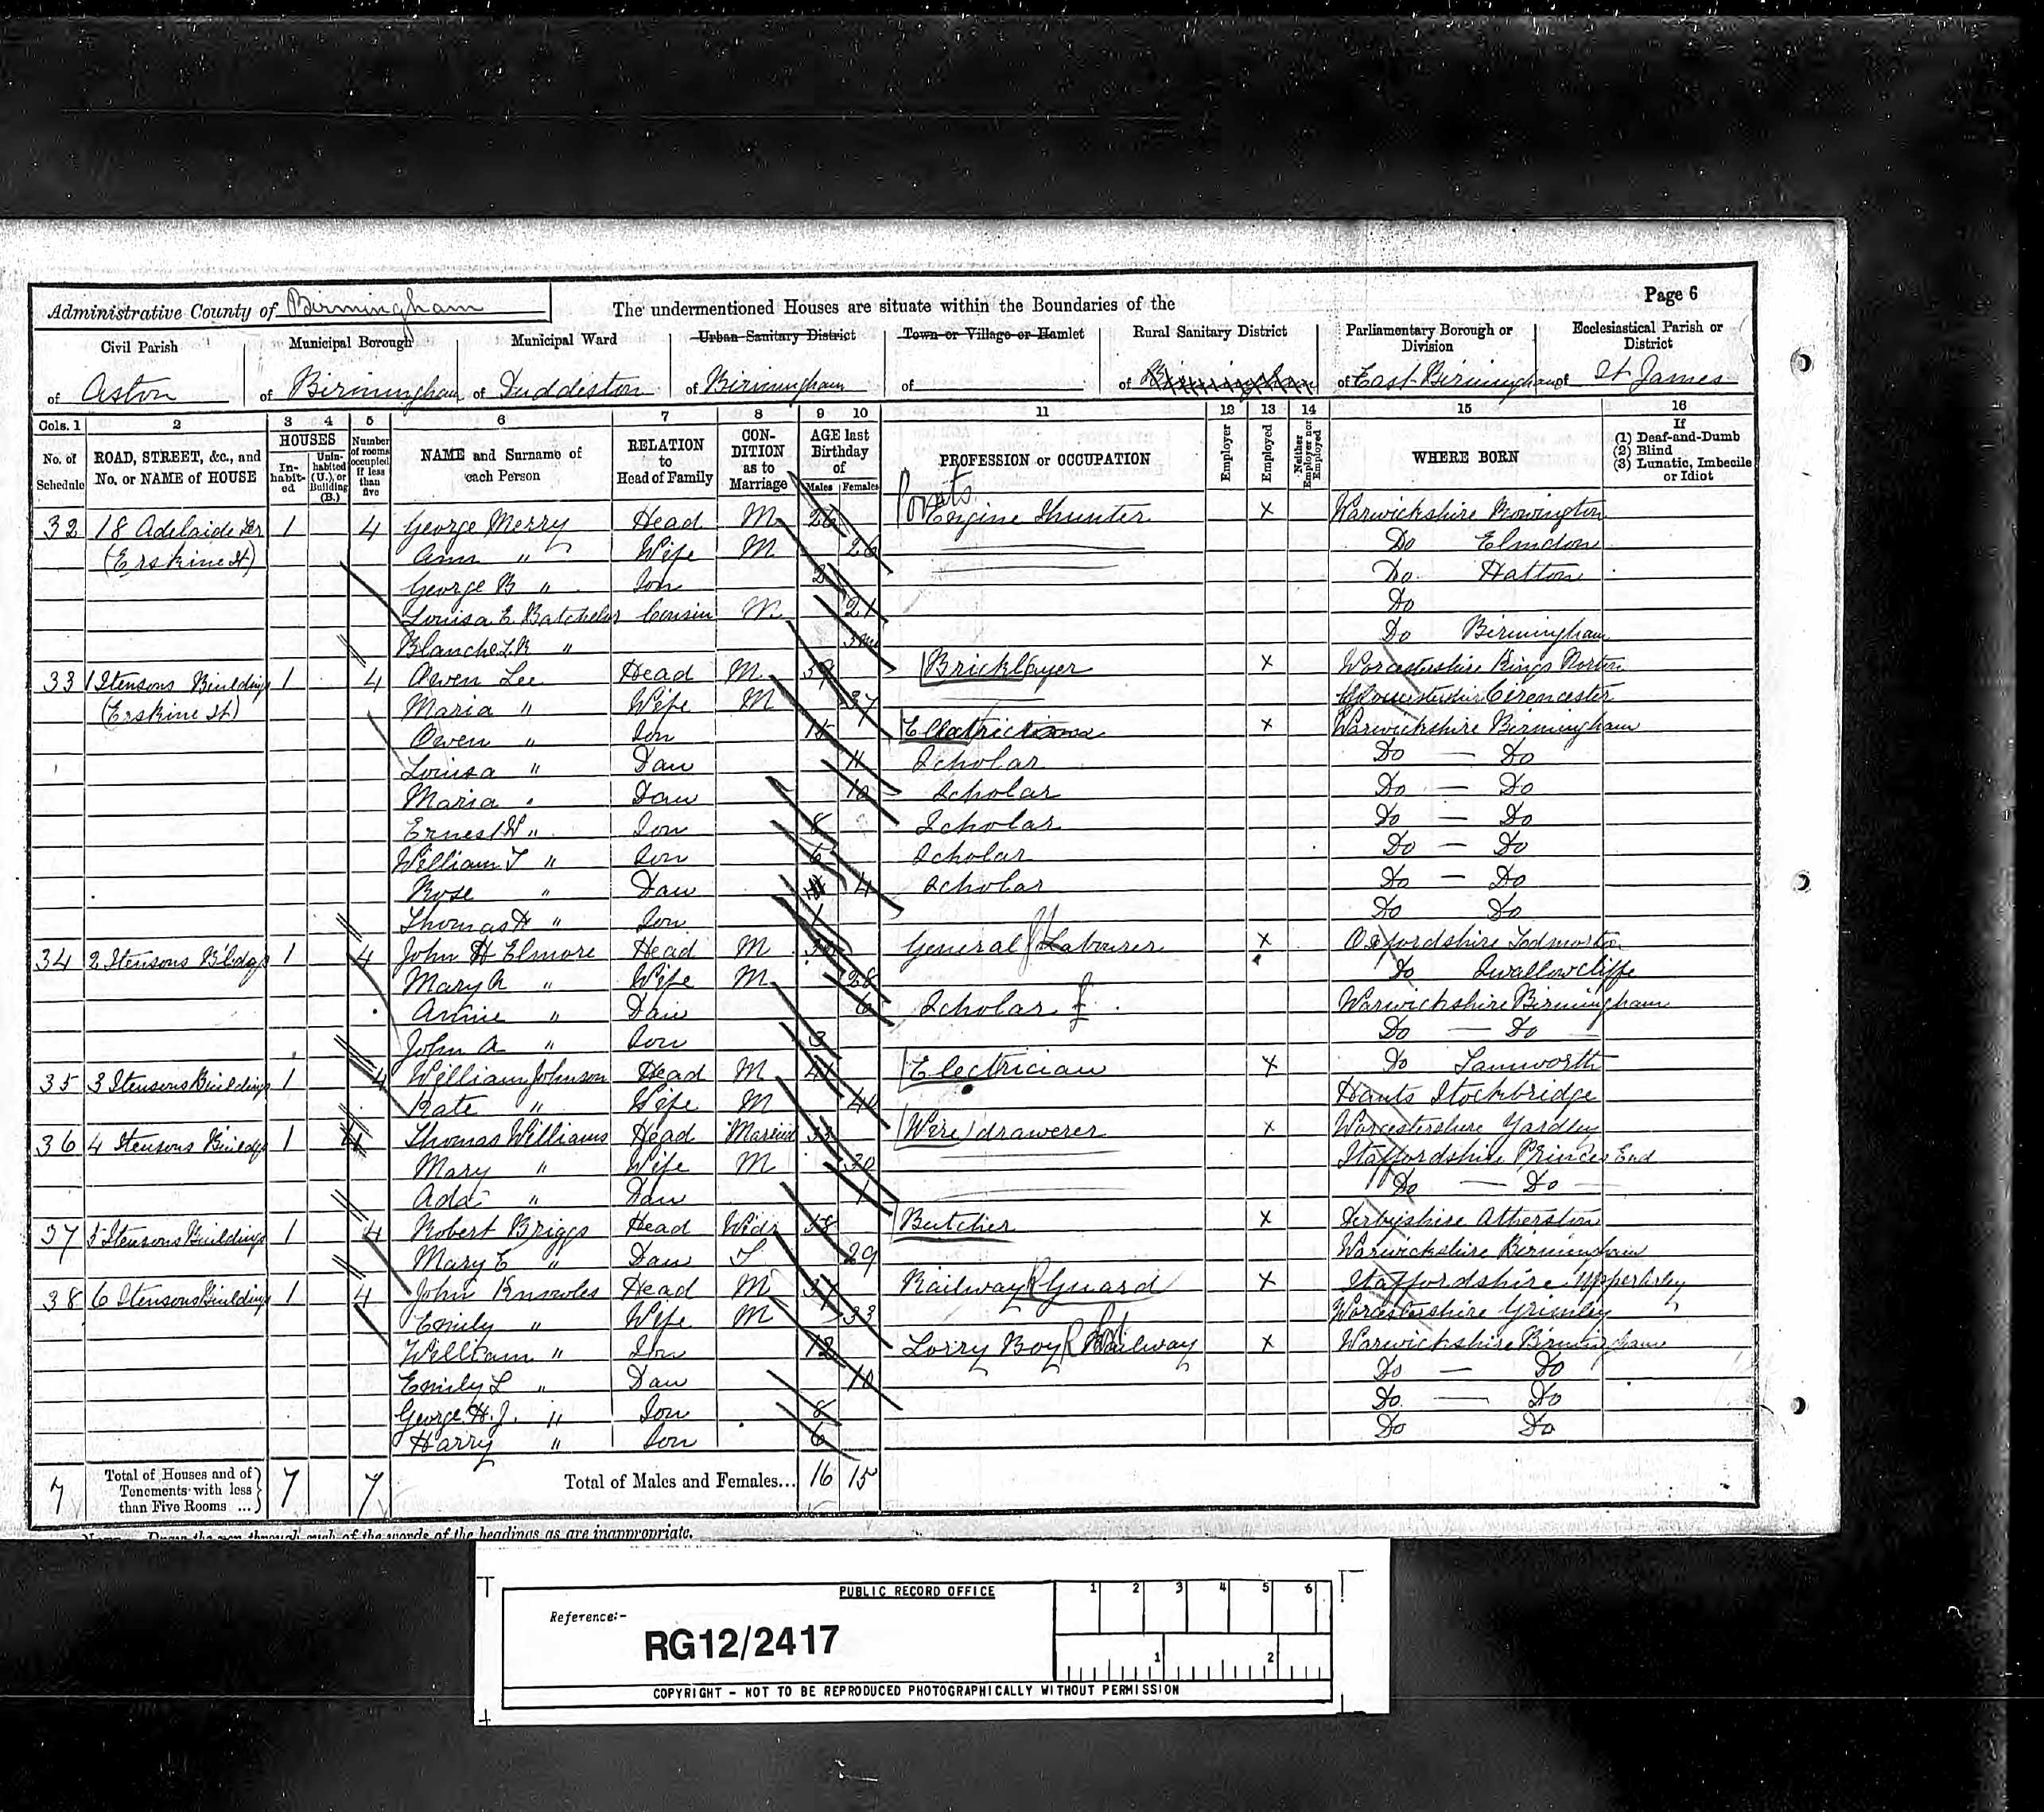 Page 6
Administrative County of Birmingham The undermentioned Houses are situate within the Boundaries of the
Civil Parish Municipal Borough Municipal Ward Urban Sanitary District Town or Village or Hamlet Rural Sanitary District Parliamentary Borough or Division Ecclesiastical Parish or District
of Aston of Birmingham of Duddeston of Birmingham of of Birmingham of East Birmingham of St James
Cols. 1 2 3 4 5 6 7 8 9 10 11 12 13 14 15 16
No. of Schedule ROAD, STREET, &c., and No. or NAME of HOUSE HOUSES Inhabited Uninhabited (U.), or Building (B.) Number of rooms occupied if less than five NAME and Surname of each Person RELATION to Head of Family CONDITION as to Marriage AGE last Birthday of Males Females PROFESSION or OCCUPATION Employer Employed Neither Employer nor Employed WHERE BORN If (1) Deaf-and-Dumb (2) Blind (3) Lunatic, Imbecile or Idiot
32 18 Adelaide 1 4 George Merry Head M 26 Engine Shunter X Warwickshire Rowington
(Erskine St) Ann " Wife M 26 Do Elmdon
George B " Son 2 Do Hatton
Louisa E. Batchelor Cousin 21 Do
Blanche L.R " 3m Do Birmingham
33 1 Stensons Building 1 4 Owen Lee Head M 39 Bricklayer X Worcestershire Kings Norton
(Erskine St) Maria " Wife M 37 Gloucestershire Cirencester
Owen " Son 15 X Warwickshire Birmingham
Louisa " Daw 11 Scholar Do — Do
Maria " Daw 10 Scholar Do — Do
Ernest W " Son 8 Scholar Do — Do
William T " Son 6 Scholar Do — Do
Rose " Daw 4 Scholar Do — Do
Thomas H " Son 1 Do Do
34 2 Stensons Bldgs 1 4 John H Elmore Head M General Labourer X Oxfordshire
Mary A " Wife M 28 Do Swallowcliffe
Annie " Daw 6 Scholar Warwickshire Birmingham
John A " Son 3 Do — Do
35 3 Stensons Building 1 4 William Johnson Head M 41 Electrician X Do Tamworth
Kate " Wife M 44 Hants Stockbridge
36 4 Stensons Buildgs 1 4 Thomas Williams Head Married 33 Wire drawerer X Worcestershire Yardley
Mary " Wife M 30 Staffordshire Princes End
Ada " Daw 1 Do — Do
37 5 Stensons Building 1 4 Robert Briggs Head Widr 58 Butcher X Derbyshire Atherston
Mary E " Daw S 29 Warwickshire Birmingham
38 6 Stensons Building 1 4 John Knowles Head M Railway Guard X Staffordshire
Emily " Wife M 33 Worcestershire Grimley
William " Son 12 Lorry Boy Railway X Warwickshire Birmingham
Emily L " Daw 10 Do — Do
George H. J. " Son 8 Do — Do
Harry " Son 6 Do Do
7 Total of Houses and of Tenements with less than Five Rooms ... 7 7 Total of Males and Females... 16 15
Draw the pen through such of the words of the headings as are inappropriate.
PUBLIC RECORD OFFICE
Reference:-
RG12/2417
1 2 3 4 5 6
1 2
COPYRIGHT - NOT TO BE REPRODUCED PHOTOGRAPHICALLY WITHOUT PERMISSION